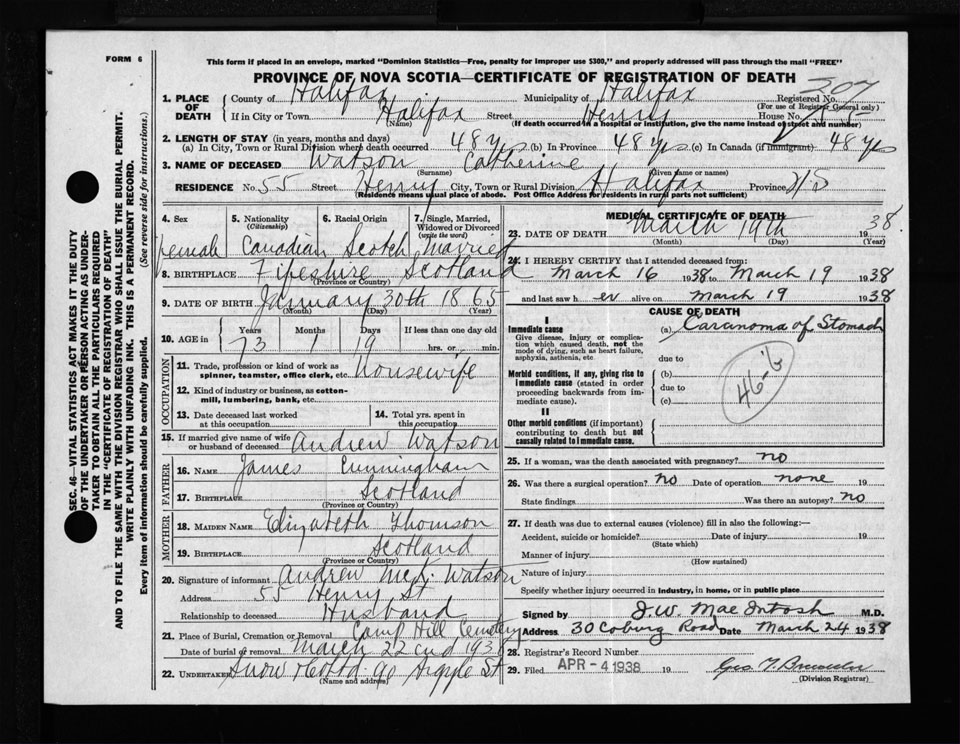 FORM 6
This form if placed in an envelope, marked "Dominion Statistics—Free, penalty for improper use $300," and properly addressed will pass through the mail "FREE"
PROVINCE OF NOVA SCOTIA—CERTIFICATE OF REGISTRATION OF DEATH
1. PLACE OF DEATH
County of Halifax Municipality of Halifax Registered No. 207
(For use of Registrar General only)
If in City or Town Halifax Street Henry House No. 55
(Name) (If death occurred in a hospital or institution, give the name instead of street and number)
2. LENGTH OF STAY (in years, months and days)
(a) In City, Town or Rural Division where death occurred 48 yrs (b) In Province 48 yrs (c) In Canada (if immigrant) 48 yrs
3. NAME OF DECEASED Watson Catherine
(Surname) (Given name or names)
RESIDENCE No. 55 Street Henry City, Town or Rural Division Halifax Province N S
(Residence means usual place of abode. Post Office Address for residents in rural parts not sufficient)
4. Sex female
5. Nationality (Citizenship) Canadian
6. Racial Origin Scotch
7. Single, Married, Widowed or Divorced (write the word) Married
8. BIRTHPLACE Fifeshire Scotland
(Province or Country)
9. DATE OF BIRTH January 30th 1865
(Month) (Day) (Year)
10. AGE in Years Months Days If less than one day old
73 1 19 hrs. or min.
OCCUPATION
11. Trade, profession or kind of work as spinner, teamster, office clerk, etc. Housewife
12. Kind of industry or business, as cotton-mill, lumbering, bank, etc.
13. Date deceased last worked at this occupation
14. Total yrs. spent in this occupation
15. If married give name of wife or husband of deceased Andrew Watson
FATHER
16. NAME James Cunningham
17. BIRTHPLACE Scotland
(Province or Country)
MOTHER
18. MAIDEN NAME Elizabeth Thomson
19. BIRTHPLACE Scotland
(Province or Country)
20. Signature of informant Andrew McK. Watson
Address 55 Henry St
Relationship to deceased Husband
21. Place of Burial, Cremation or Removal Camp Hill Cemetery
Date of burial or removal March 22nd 1938
22. UNDERTAKER Snow & Co Ltd. 90 Argyle St
(Name and address)
MEDICAL CERTIFICATE OF DEATH
23. DATE OF DEATH March 19th 1938
(Month) (Day) (Year)
24. I HEREBY CERTIFY that I attended deceased from:
March 16 1938 to March 19 1938
and last saw her alive on March 19 1938
CAUSE OF DEATH
I
Immediate cause
Give disease, injury or complication which caused death, not the mode of dying, such as heart failure, asphyxia, asthenia, etc.
(a) Carcanoma of Stomach
due to
Morbid conditions, if any, giving rise to immediate cause (stated in order proceeding backwards from immediate cause).
(b)
due to
(c)
46-b
II
Other morbid conditions (if important) contributing to death but not causally related to immediate cause.
25. If a woman, was the death associated with pregnancy? no
26. Was there a surgical operation? no Date of operation none 19
State findings Was there an autopsy? no
27. If death was due to external causes (violence) fill in also the following:—
Accident, suicide or homicide? Date of injury 19
(State which)
Manner of injury
(How sustained)
Nature of injury
Specify whether injury occurred in industry, in home, or in public place
Signed by J.W. MacIntosh M.D.
Address 30 Coburg Road Date March 24 1938
28. Registrar's Record Number
29. Filed APR - 4 1938 19
(Division Registrar)
SEC. 46—VITAL STATISTICS ACT MAKES IT THE DUTY
OF THE UNDERTAKER OR PERSON ACTING AS UNDER-
TAKER TO OBTAIN ALL THE PARTICULARS REQUIRED
IN THE "CERTIFICATE OF REGISTRATION OF DEATH"
AND TO FILE THE SAME WITH THE DIVISION REGISTRAR WHO SHALL ISSUE THE BURIAL PERMIT.
WRITE PLAINLY WITH UNFADING INK. THIS IS A PERMANENT RECORD.
Every item of information should be carefully supplied. (See reverse side for instructions.)